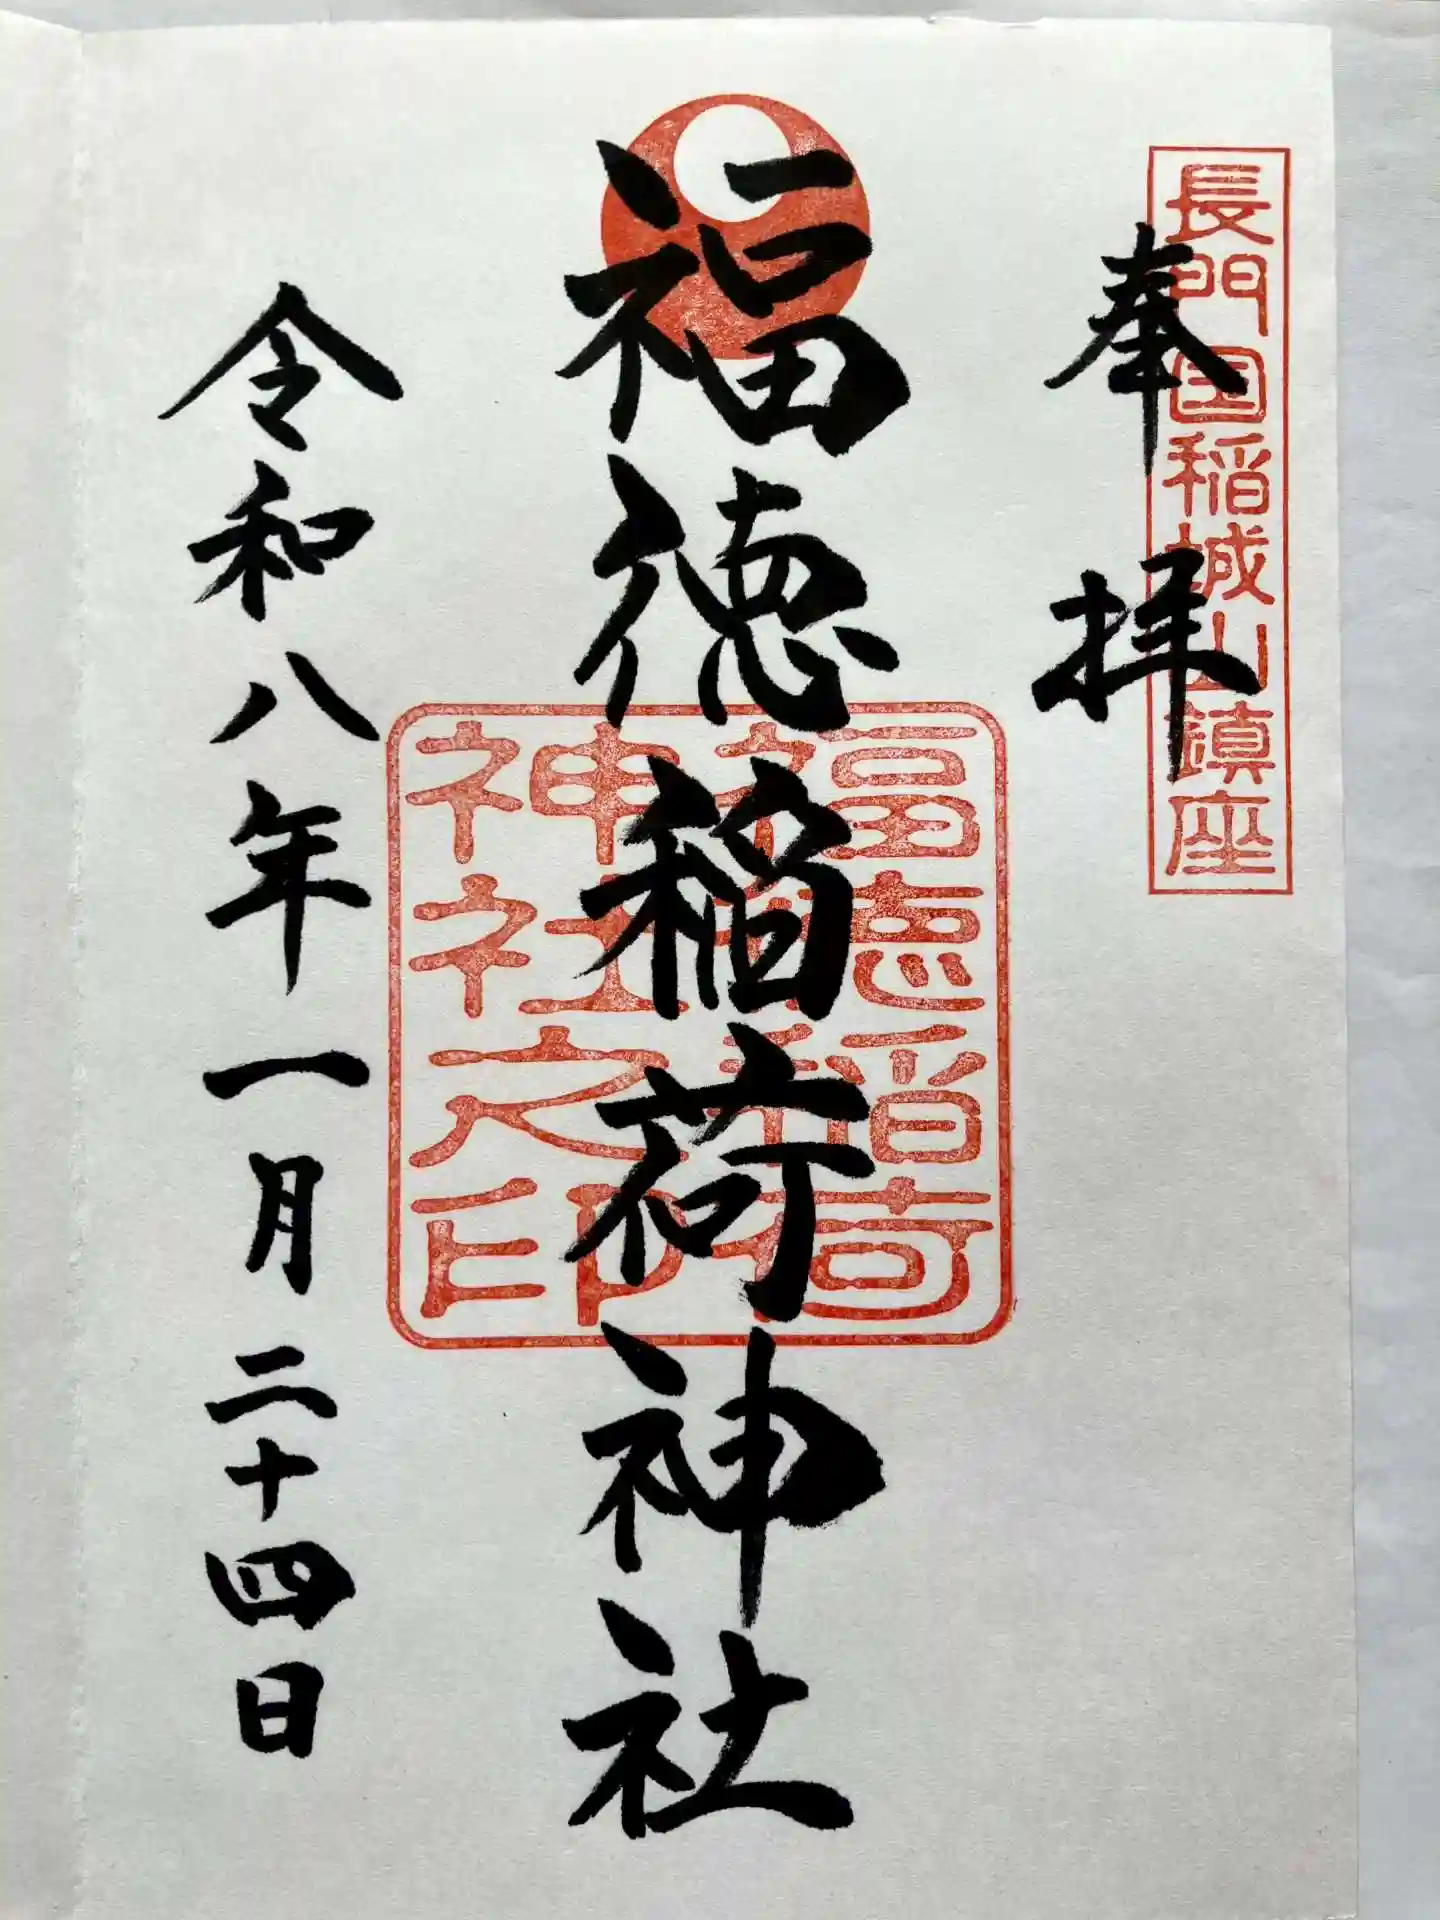 長門国稲城山鎮座
奉拝
福徳稲荷神社
福徳稲荷
神社之印
令和八年一月二十四日